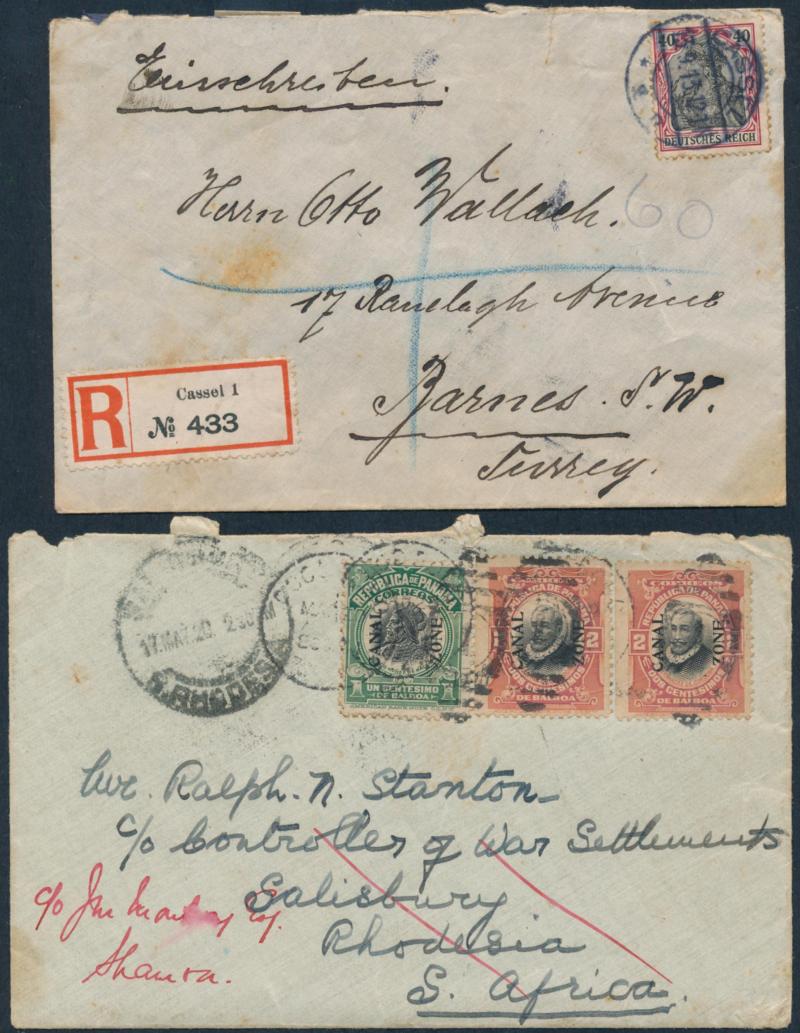 Einschreiben.
40 40
DEUTSCHES REICH
Herrn Otto Wallach.
60
17 Ranelagh Avenue
Barnes. S.W.
Surrey.
R
Cassel 1
№ 433
17.MAY.20 2.30
S.RHODESIA
REPÚBLICA DE PANAMA
CORREOS
CANAL ZONE
1 1
UN CENTESIMO
DE BALBOA
CORREOS
REPUBLICA DE PANAMA
CANAL ZONE
2 2
DOS CENTESIMOS
DE BALBOA
CORREOS
REPUBLICA DE PANAMA
CANAL ZONE
2 2
DOS CENTESIMOS
DE BALBOA
Mr. Ralph. N. Stanton
c/o Controller of War Settlements
Salisbury
Rhodesia
S. Africa.
c/o Jno Esq.
Shamva.